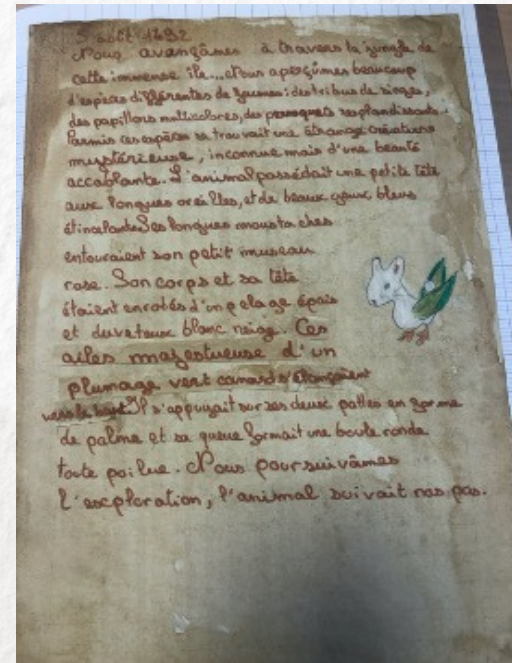 5 août 1492
Nous avançâmes à travers la jungle de
cette immense île... Nous aperçûmes beaucoup
d'espèces différentes de faunes : des tribus de singes,
des papillons multicolores, des perroquets resplendissants.
Parmis ces espèces se trouvait une étrange créature
mystérieuse, inconnue mais d'une beauté
accablante. L'animal possédait une petite tête
aux longues oreilles, et de beaux yeux bleus
étincelants. Ses longues moustaches
entouraient son petit museau
rose. Son corps et sa tête
étaient enrobés d'un pelage épais
et duveteux blanc neige. Ces
ailes majestueuse d'un
plumage vert canard s'élançaient
vers le haut. Il s'appuyait sur ses deux pattes en forme
de palme et sa queue formait une boule ronde
toute poilue. Nous poursuivâmes
l'exploration, l'animal suivait nos pas.